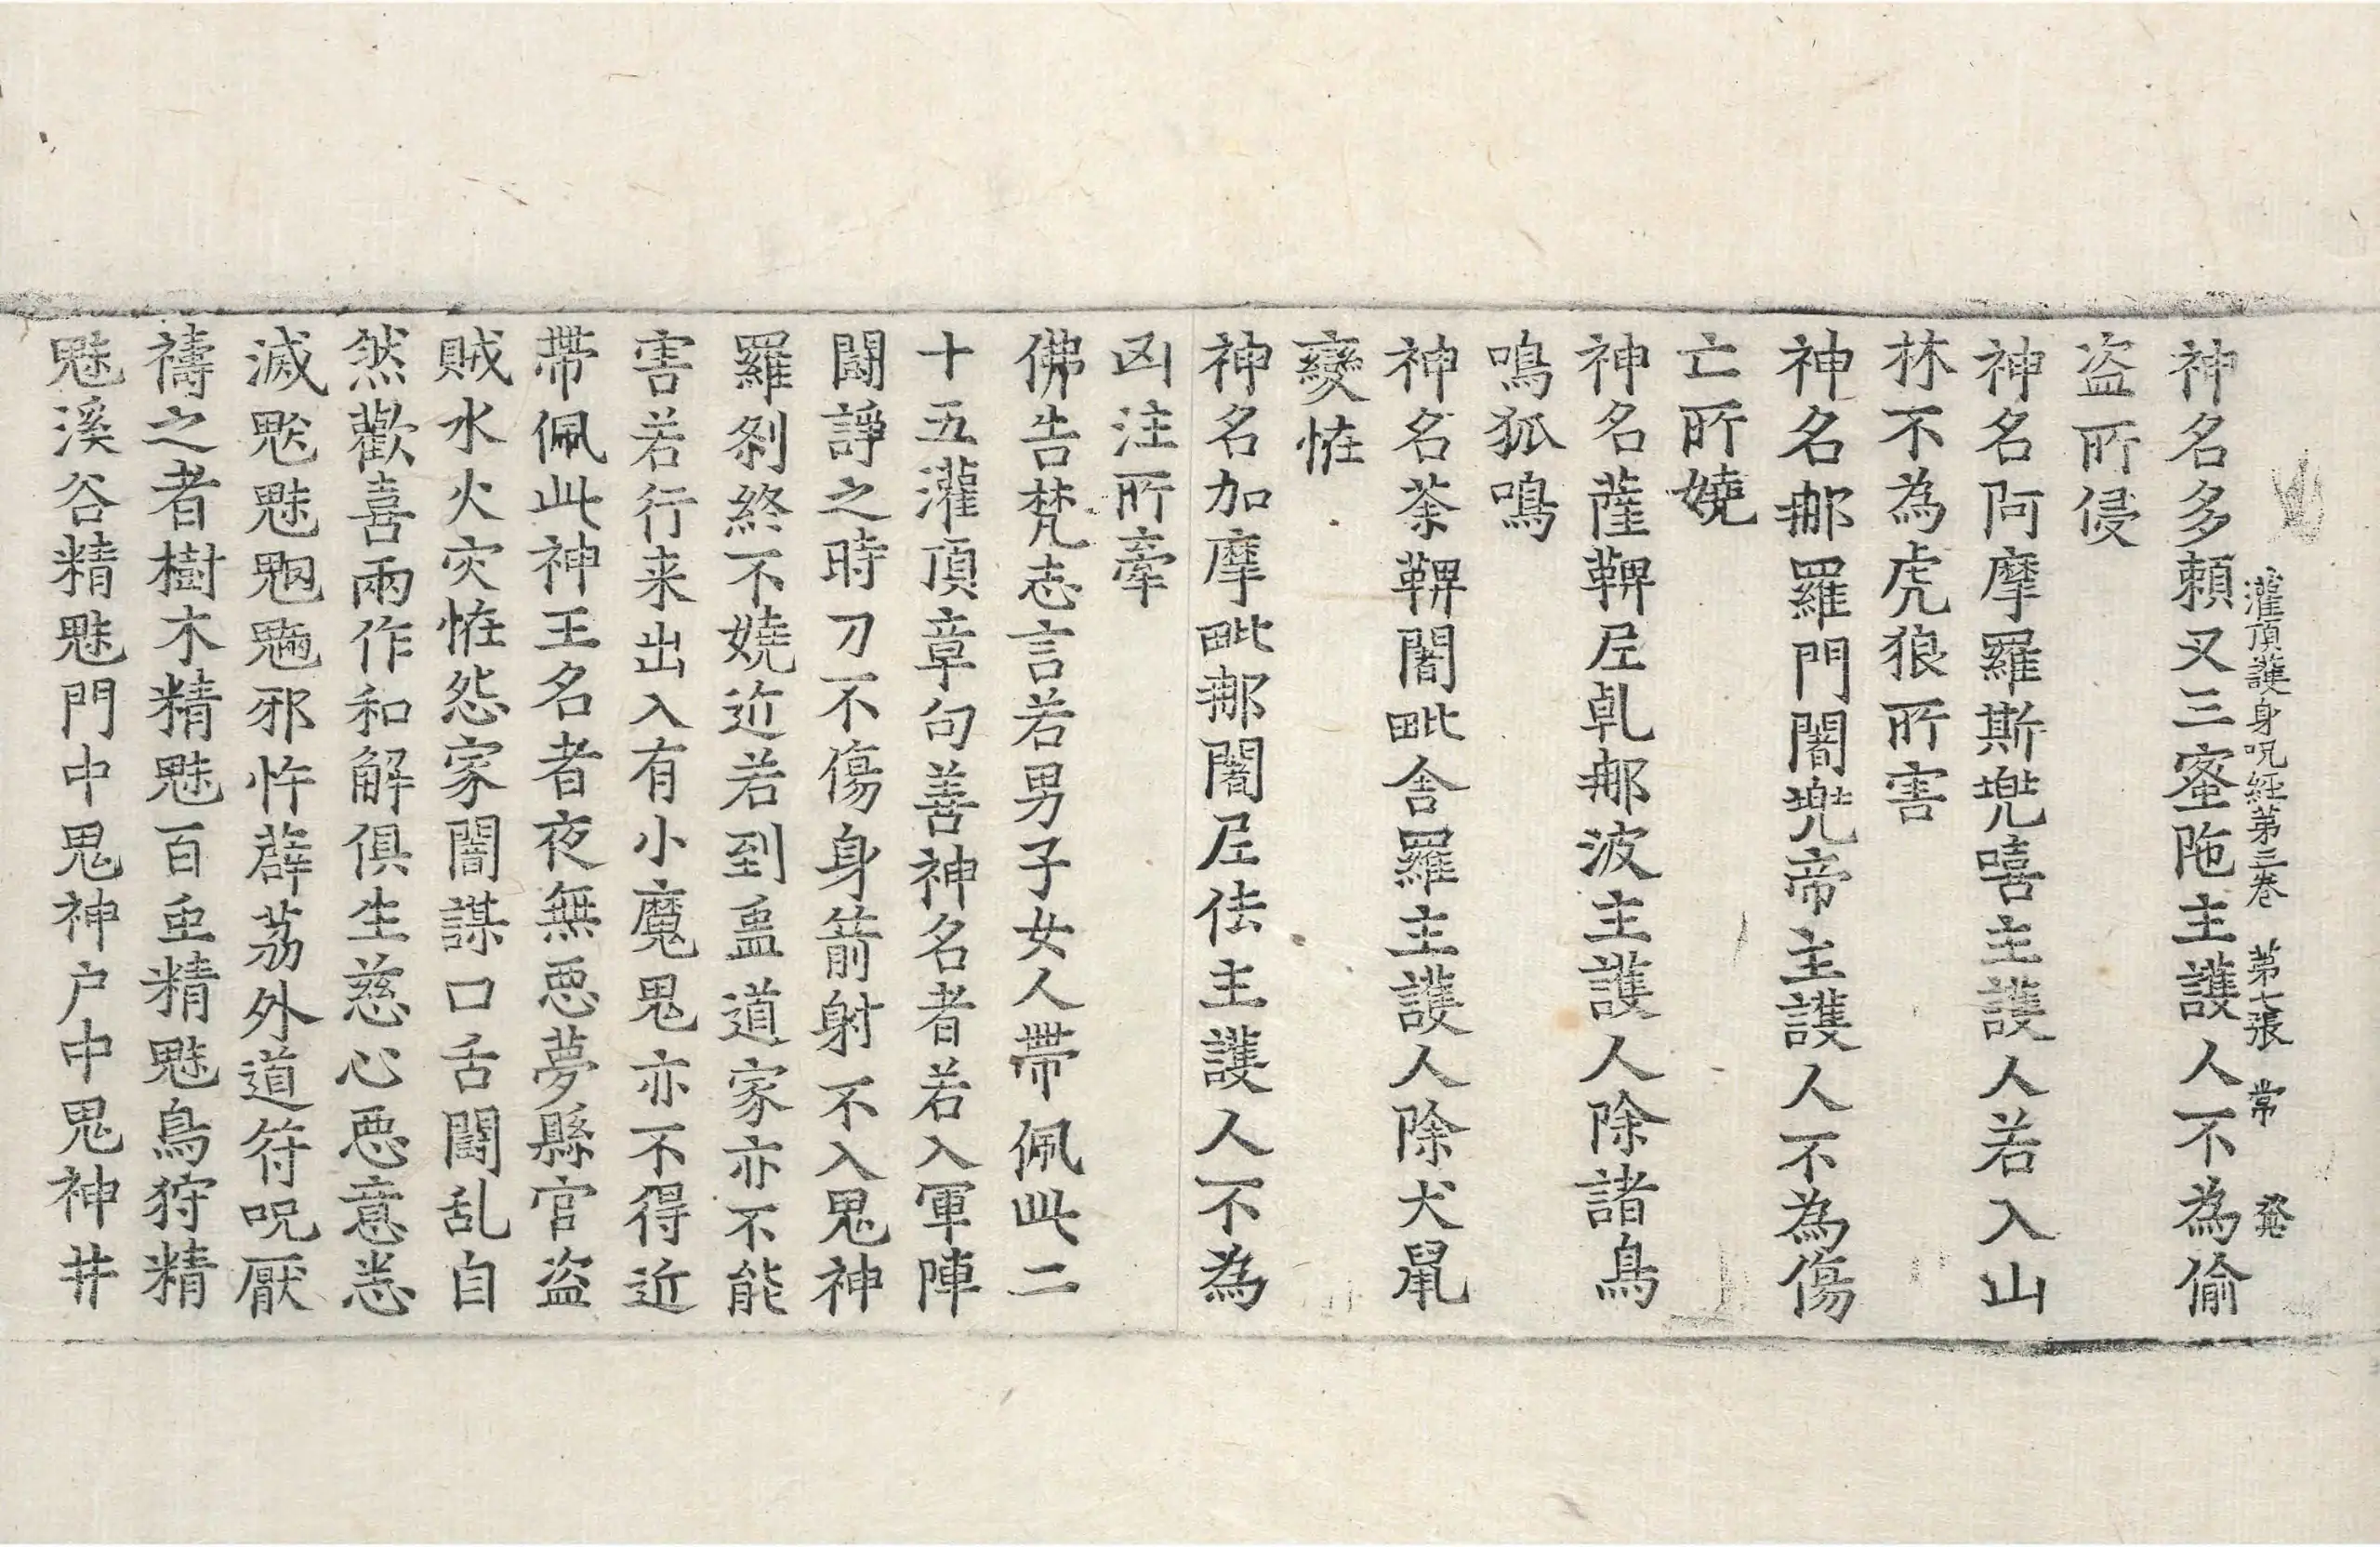 灌頂護身呪經第三卷　第七張　常　發
神名多頼叉三蜜陁主護人不為偷
盜所侵
神名阿摩羅斯兠嘻主護人若入山
林不為虎狼所害
神名郍羅門闍兠帝主護人不為傷
亡所嬈
神名薩鞞𡰱乹郍波主護人除諸鳥
鳴狐鳴
神名荼鞞闍毗舍羅主護人除犬鼠
變恠
神名加摩毗郍闍𡰱佉主護人不為
凶注所牽
佛告梵志言若男子女人帶佩此二
十五灌頂章句善神名者若入軍陣
鬪諍之時刀不傷身箭射不入鬼神
羅剎終不嬈近若到蠱道家亦不能
害若行来出入有小魔鬼亦不得近
帶佩此神王名者夜無惡夢縣官盜
賊水火灾恠怨家闇謀口舌鬪乱自
然歡喜兩作和解俱生慈心惡意悉
滅魃魅魍魎邪忤薜荔外道符呪厭
禱之者樹木精魅百虫精魅鳥狩精
魅溪谷精魅門中鬼神户中鬼神井